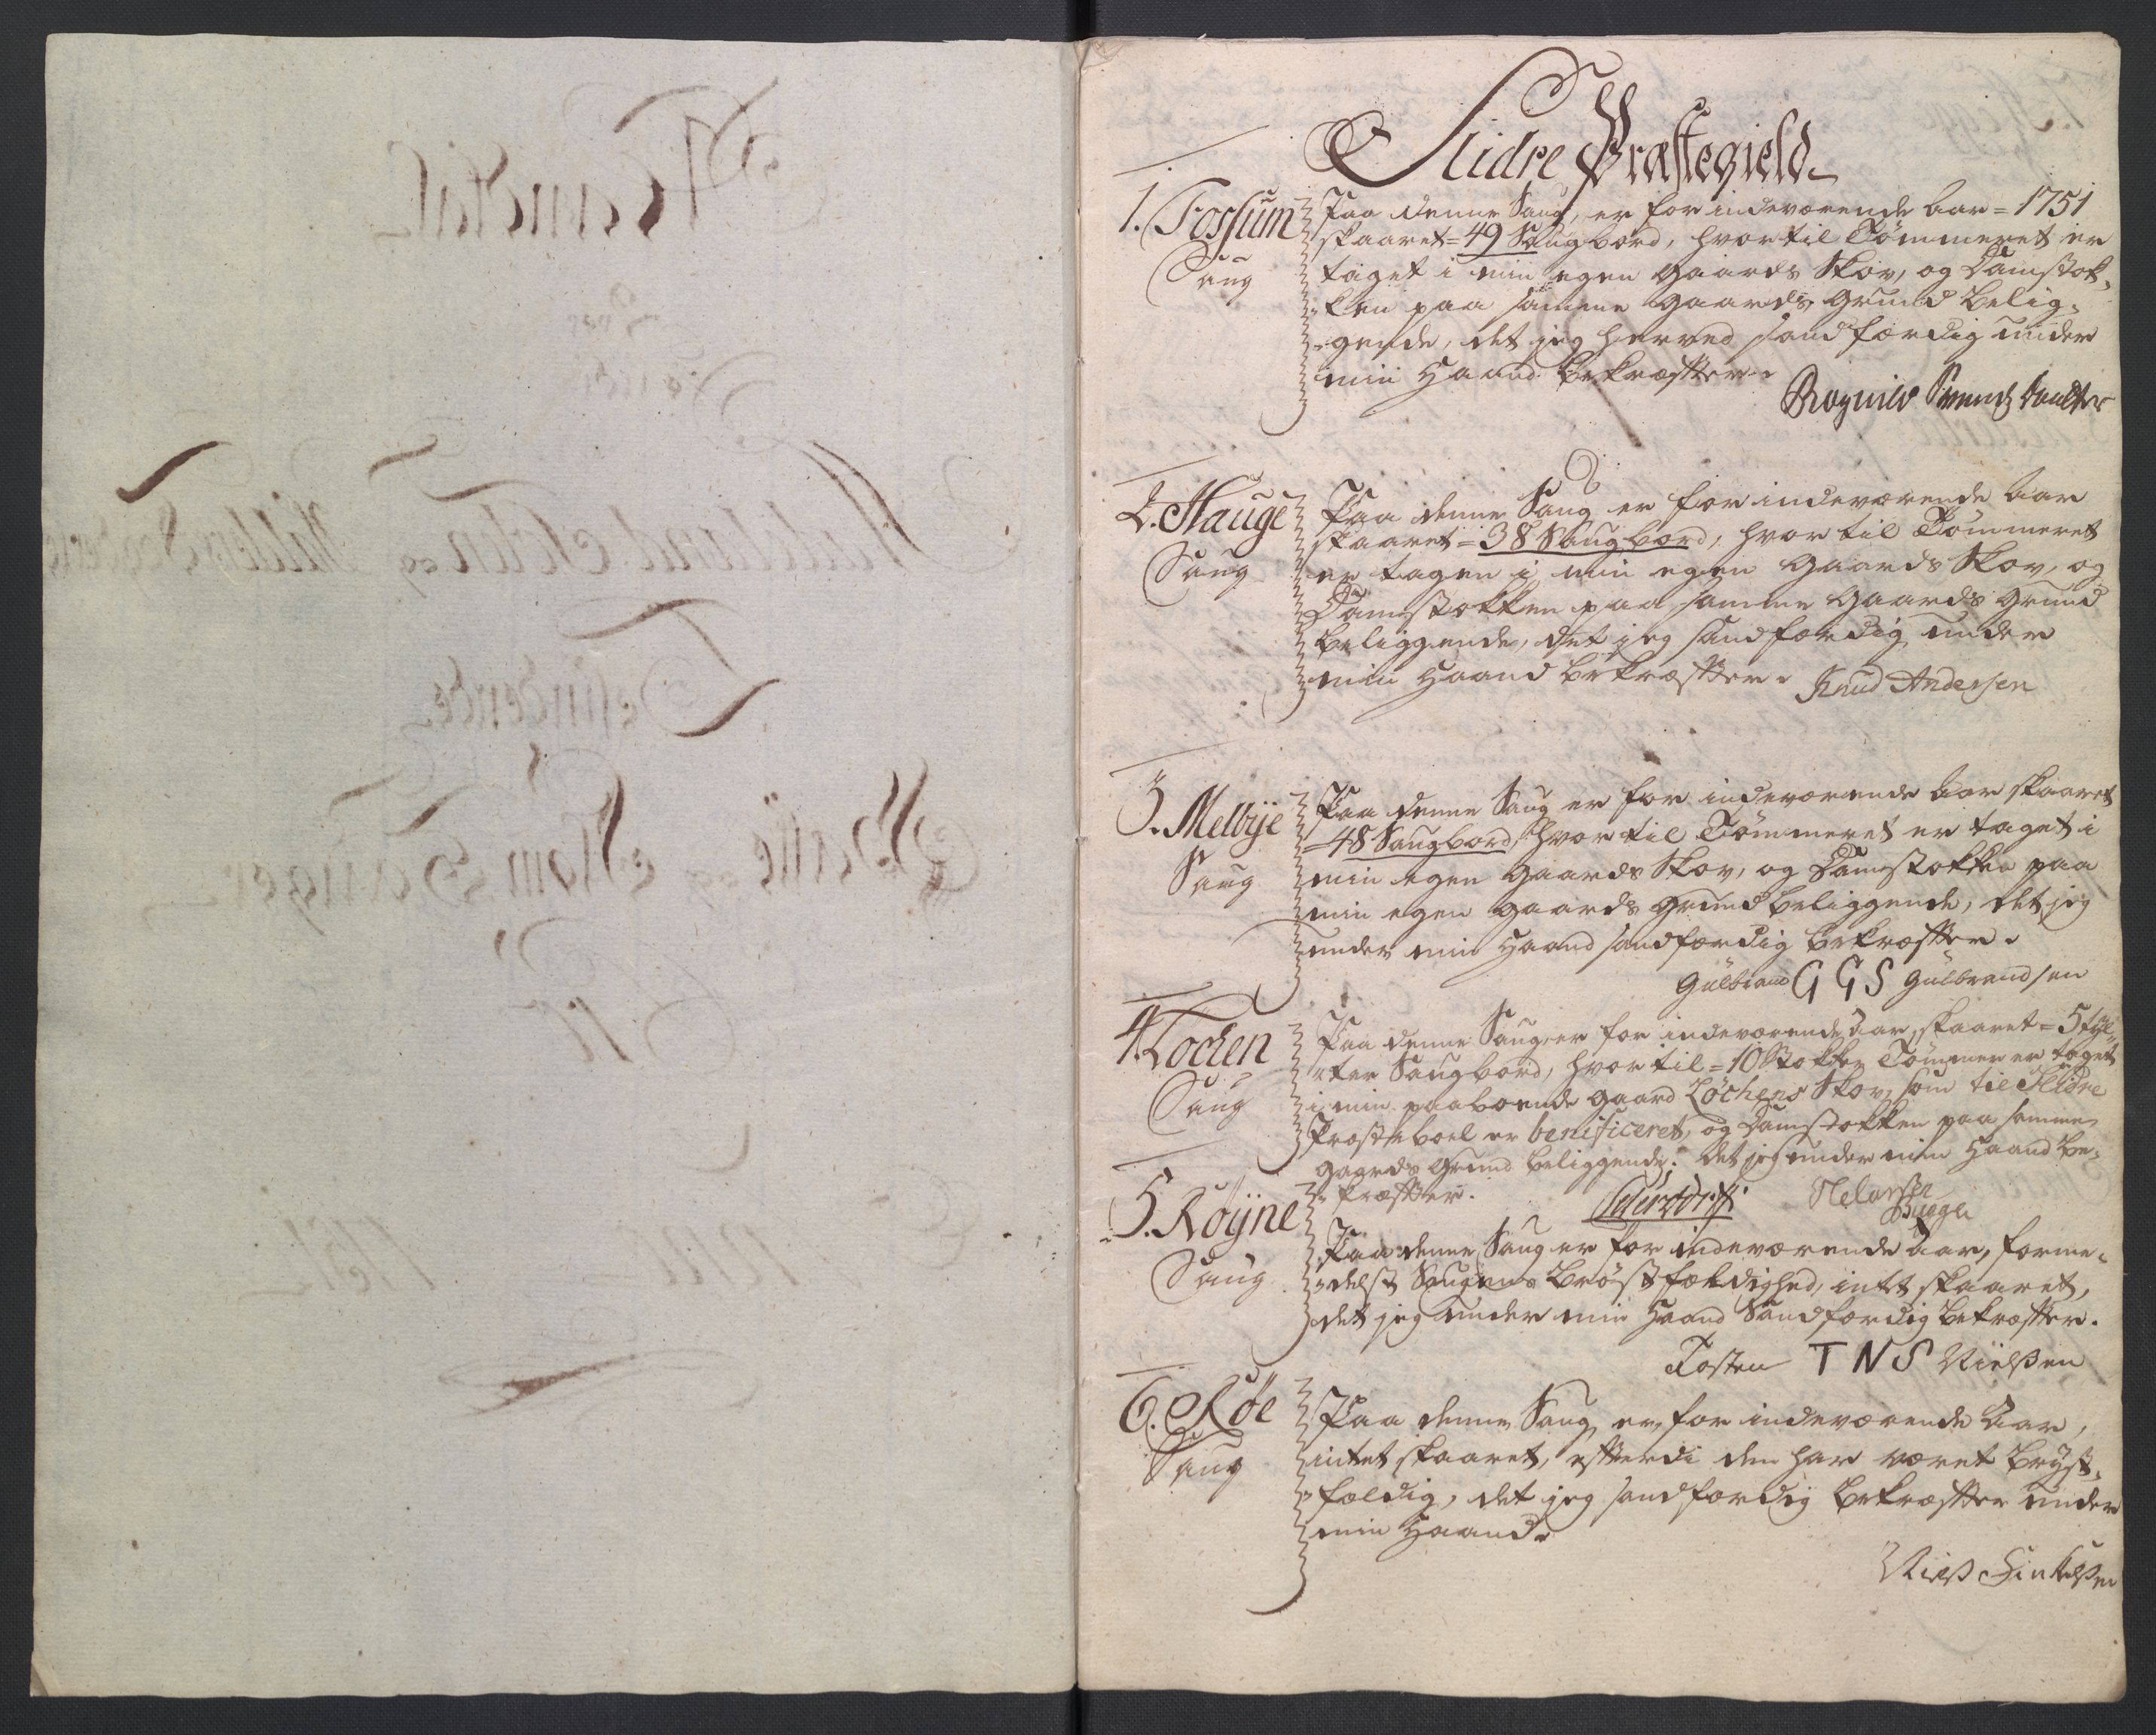 Slidre Præstegield
1. Fossum
Saug
Paa denne Saug, er for indeværende Aar = 1751
skaaret = 49 Saugbord, hvortil Tømmeret er
taget i min egen Gaards Skov, og Damstok-
ken paa samme Gaards Grund belig-
gende, det jeg herved sandfærdig under
min Haand bekræfter.
2. Hauge
Saug
Paa denne Saug er for indeværende Aar
skaaret = 38 Saugbord, hvortil Tømmeret
er tagen i min egen Gaards Skov, og
Damstokken paa samme Gaards Grund
beliggende, det jeg sandfærdig under
min Haand bekræfter. Knud Andersen
3. Melbye
Saug
Paa denne Saug er for indeværende Aar skaaret
= 48 Saugbord, hvortil Tømmeret er taget i
min egen Gaards Skov, og Damstokken paa
min egen Gaards Grund beliggende, det jeg
under min Haand sandfærdig bekræfter.
Gulbrand G G S Gulbrandsen
4. Løchen
Saug
Paa denne Saug er for indeværende Aar, skaaret = 5 tyl-
ter Saugbord, hvortil = 10 Stokker Tømmer er taget
i min paaboende Gaard Løchens Skov, som til Slidre
Præsteboel er benificeret, og Damstokken paa samme
Gaards Grund beliggende. Det jeg under min Haand be-
kræfter.
5. Røyne
Saug
Paa denne Saug er for indeværende Aar, forme-
delst Saugens Brøstfældighed, intet skaaret,
det jeg under min Haand sandfærdig bekræfter.
Tosten T N S Nielsen
6. Røe
Saug
Paa denne Saug, er for indeværende Aar,
intet skaaret, efterdi den har været brøst-
fældig, det jeg sandfærdig bekræfter under
min Haand.